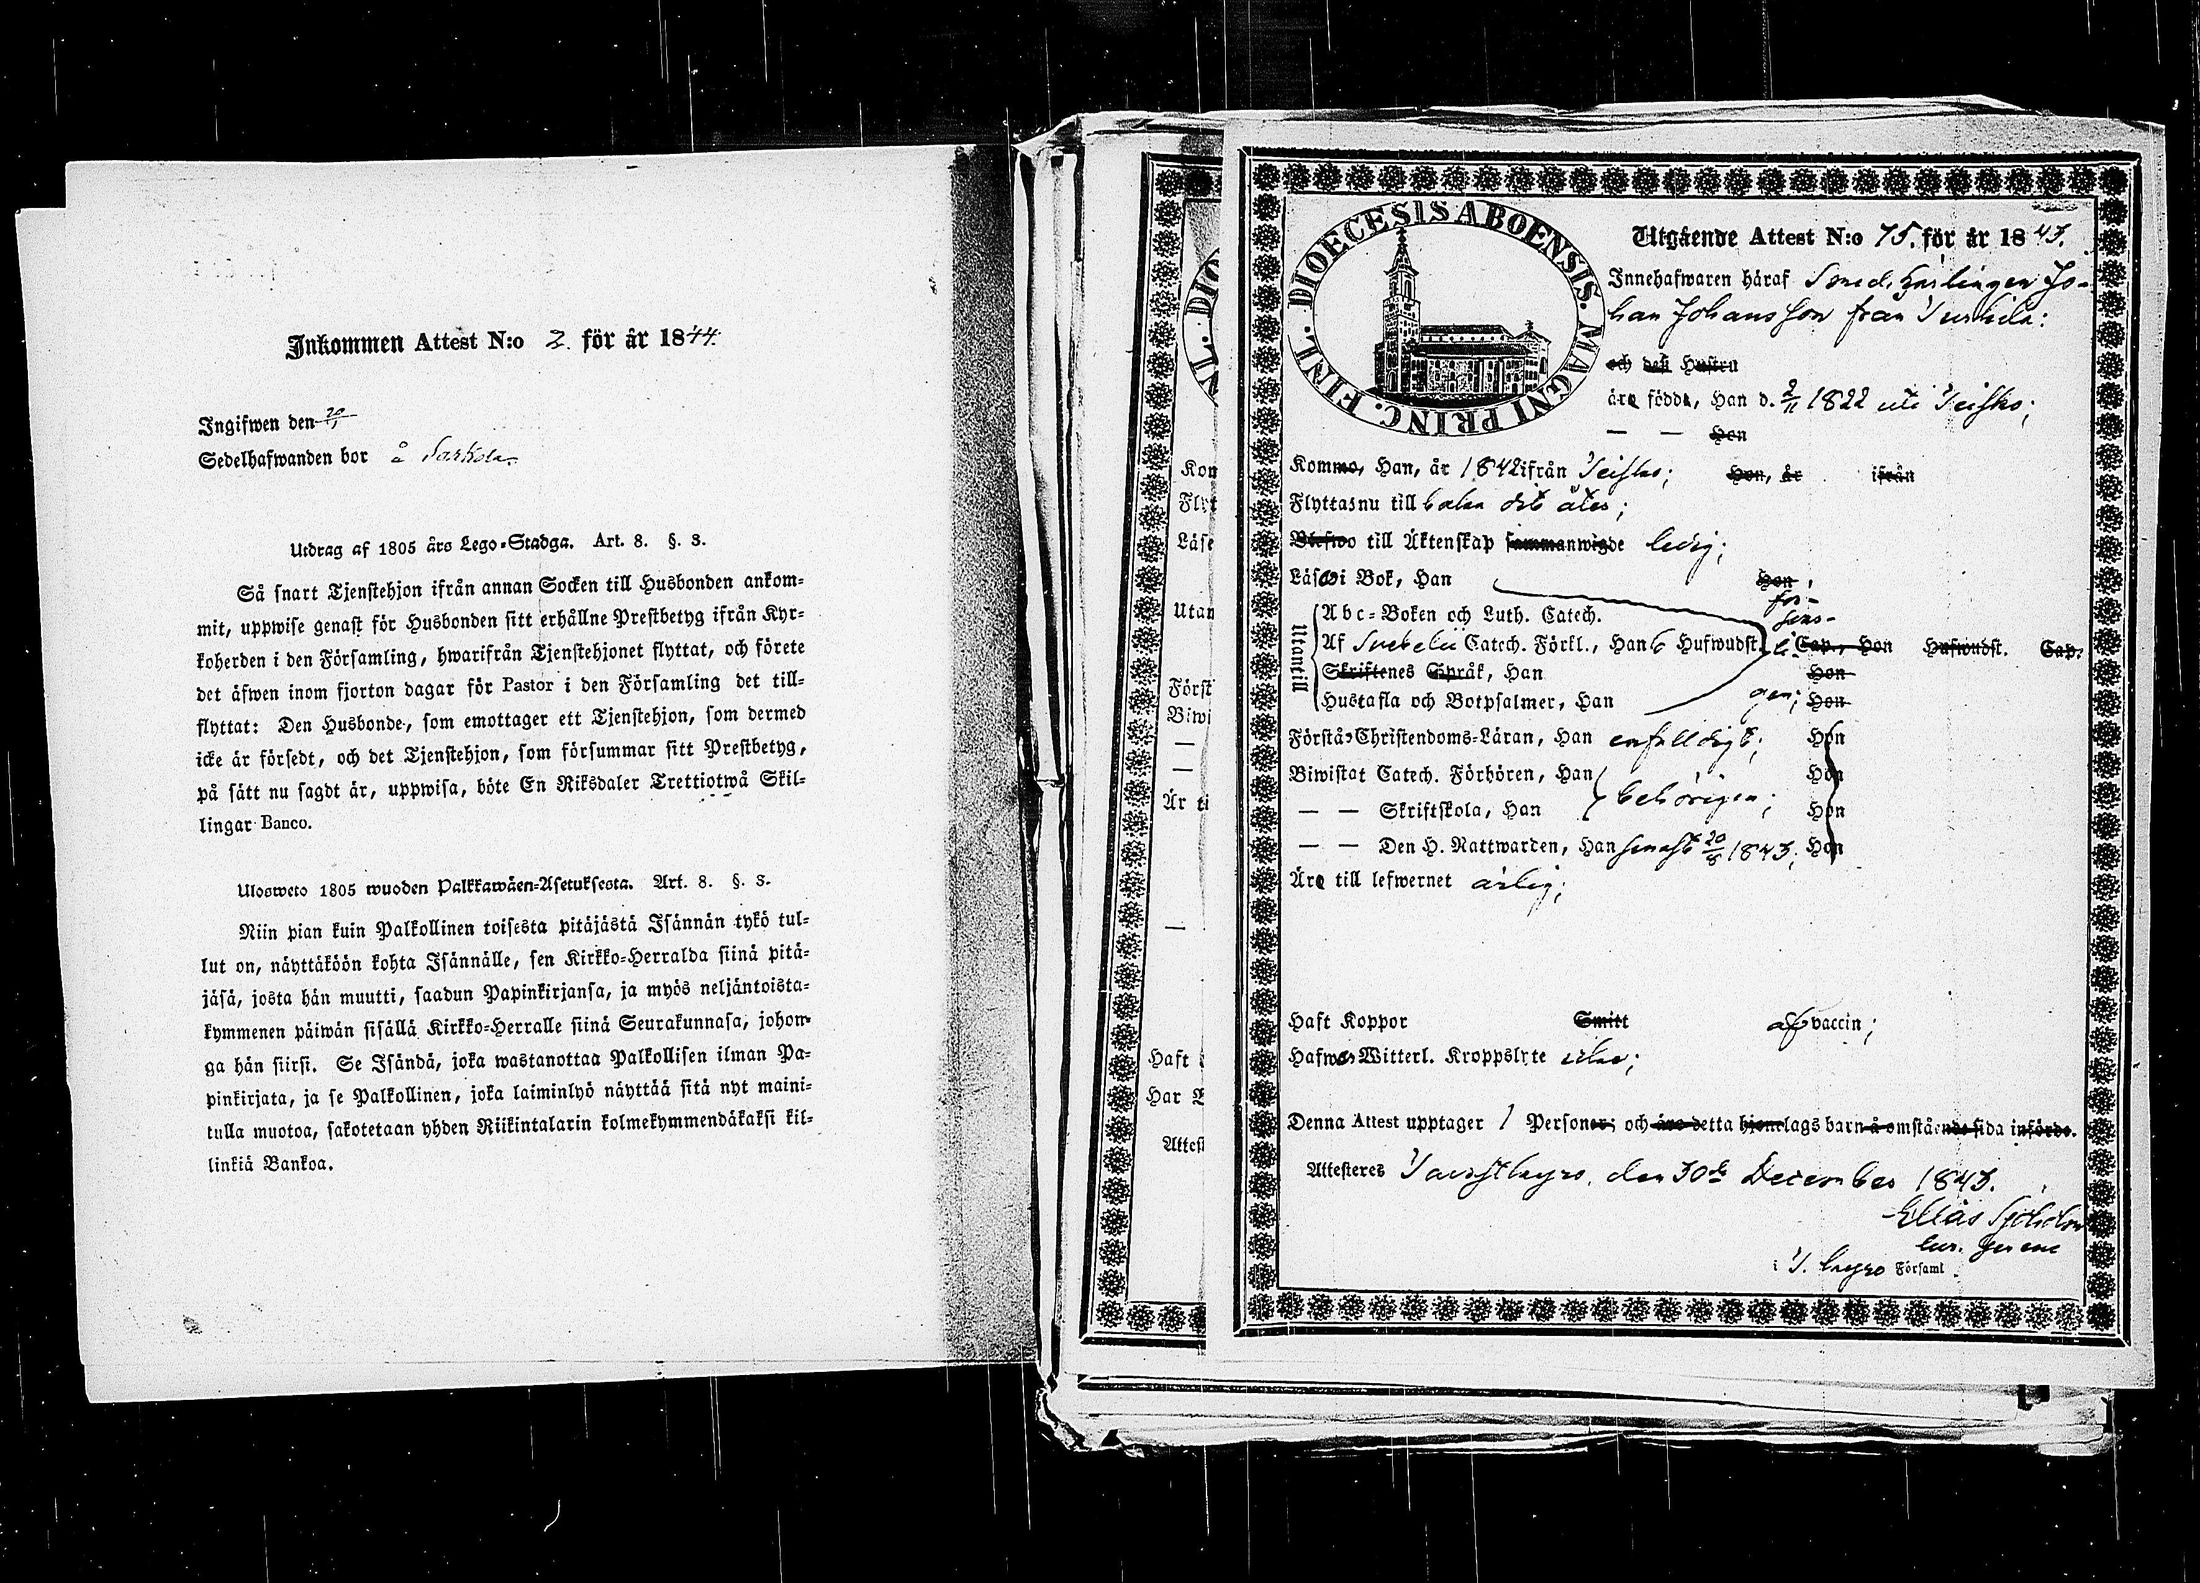 Inkommen Attest N:o 2. för år 1844.
Ingifwen den 20/1
Sedelhafwanden bor å Sarkola.
Utdrag af 1805 års Lego-Stadga. Art. 8. §. 3.
Så snart Tjenstehjon ifrån annan Socken till Husbonden ankom-
mit, uppwise genast för Husbonden sitt erhållne Prestbetyg ifrån Kyr-
koherden i den Församling, hwarifrån Tjenstehjonet flyttat, och förete
det äfwen inom fjorton dagar för Pastor i den Församling det till-
flyttat: Den Husbonde, som emottager ett Tjenstehjon, som dermed
icke är försedt, och det Tjenstehjon, som försummar sitt Prestbetyg,
på sätt nu sagdt är, uppwisa, böte En Riksdaler Trettiotwå Skil-
lingar Banco.
Ulosweto 1805 wuoden Palkkawäen-Asetuksesta. Art. 8. §. 3.
Niin pian kuin Palkollinen toisesta pitäjästä Isännän tykö tul-
lut on, näyttäköön kohta Isännälle, sen Kirkko-Herralda siinä pitä-
jäsä, josta hän muutti, saadun Papinkirjansa, ja myös neljäntoista-
kymmenen päiwän sisällä Kirkko-Herralle siinä Seurakunnasa, johon-
ga hän siirsi. Se Isändä, joka wastanottaa Palkollisen ilman Pa-
pinkirjata, ja se Palkollinen, joka laiminlyö näyttää sitä nyt maini-
tulla muotoa, sakotetaan yhden Riikintalarin kolmekymmendäkaksi kil-
linkiä Bankoa.
DIOECESIS ABOENSIS. MAGNI PRINC. FINL.
Utgående Attest N:o 75. för år 1843.
Innehafwaren häraf Smeds Lärlingen Jo-
han Johansson från
och deß Hustru
äro födde, Han d. 2/11 1822 uti Teisko;
— — Hon
Kommo, Han, år 1842 ifrån Teisko; Hon, år ifrån
Flyttas nu till baka dit åter;
Blefwo till Äktenskap sammanwigde ledig;
Läsa i Bok, Han Hon
för-
svar-
Utantill
Abc-Boken och Luth. Catech.
Af Svebelii Catech. Förkl., Han 6 Hufwudst. li Cap., Hon Hufwudst. Cap.
Skriftenes Språk, Han Hon
Hustafla och Botpsalmer, Han gen; Hon
Förstå Christendoms-Läran, Han enfaldigt; Hon
Biwistat Catech. Förhören, Han Hon
— — Skriftskola, Han behörigen; Hon
— — Den H. Nattwarden, Han senast 20/8 1843; Hon
Äro till lefwernet ärlig;
Haft Koppor Smitt af vaccin;
Hafwa Witterl. Kroppslyte utan;
Denna Attest upptager 1 Personer; och äro detta hjonelags barn å omstående sida införde.
Attesteras Tavastkyro, den 30de December 1843.
Elias
cur. gerens
i T. kyro Församl.
Kom
Flyt
Läse
Utan
Först
Biwi
—
—
Är ti
—
Haft
Har
Attest